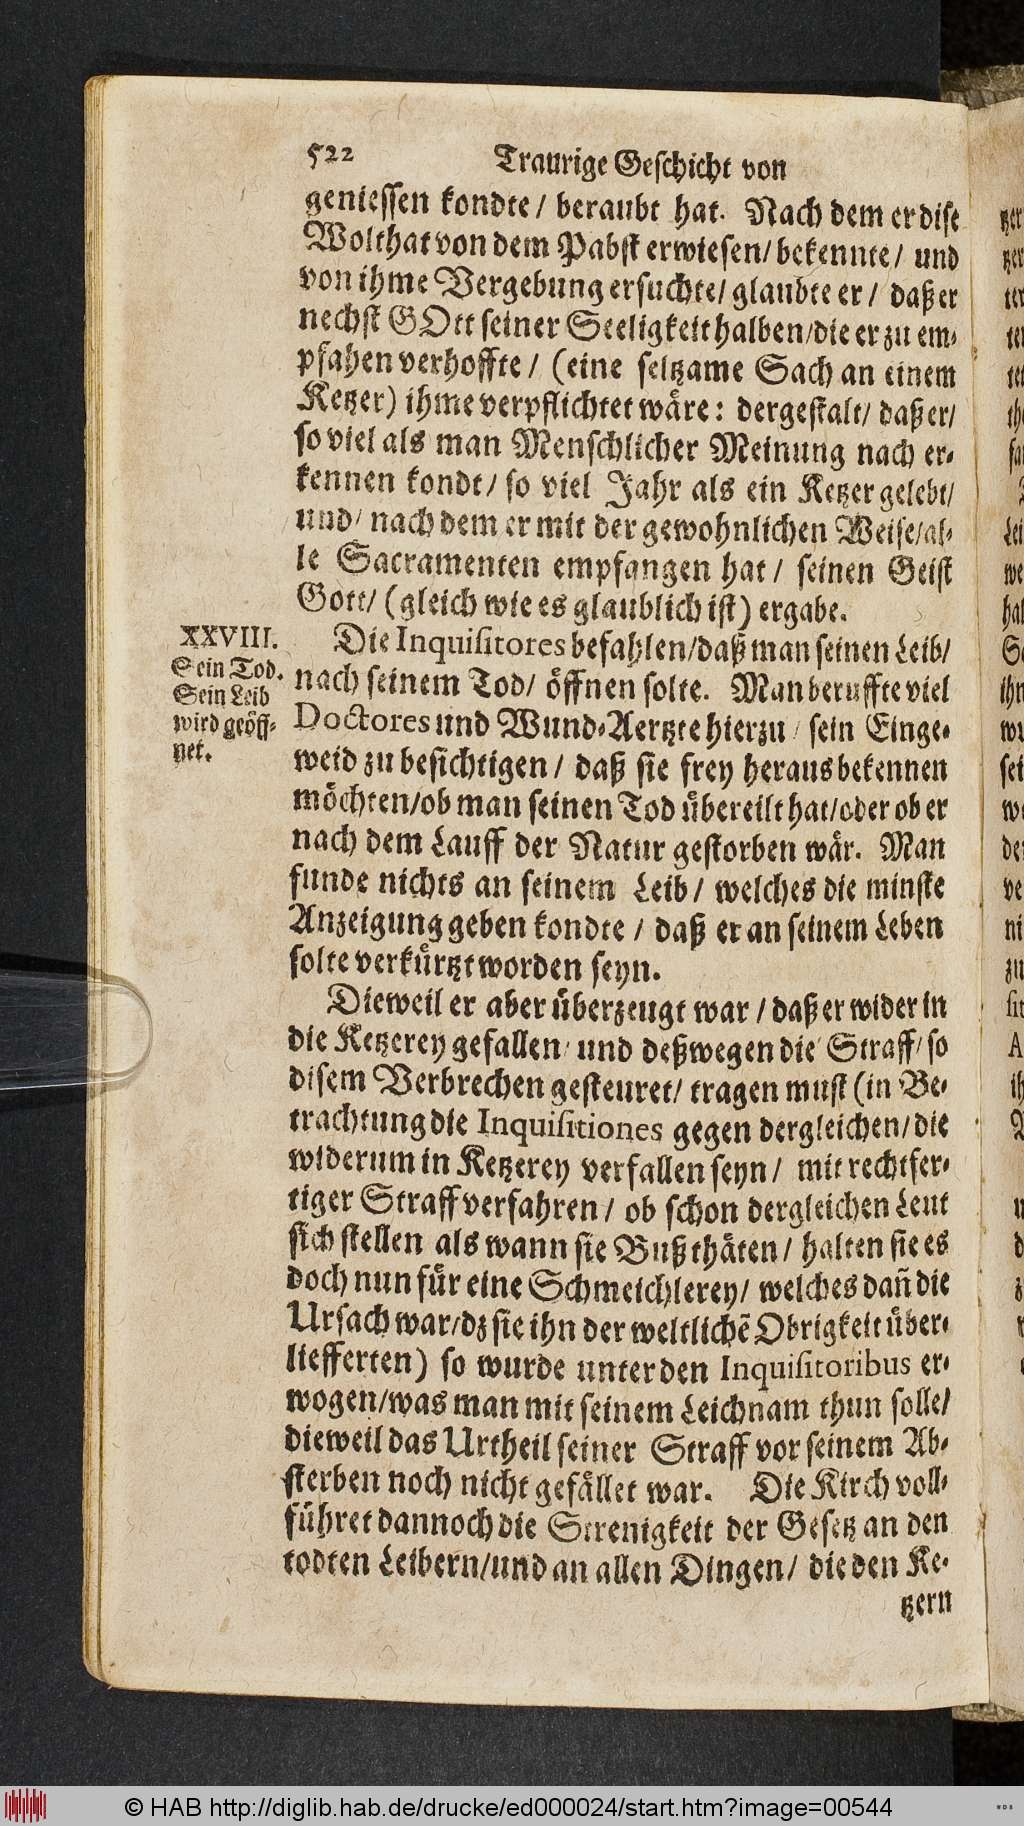 522 Traurige Geschicht von
geniessen kondte / beraubt hat. Nach dem er dise
Wolthat von dem Pabst erwiesen / bekennte / und
von ihme Vergebung ersuchte / glaubte er / daß er
nechst GOtt seiner Seeligkeit halben / die er zu em-
pfahen verhoffte / (eine seltzame Sach an einem
Ketzer) ihme verpflichtet wäre: dergestalt / daß er /
so viel als man Menschlicher Meinung nach er-
kennen kondt / so viel Jahr als ein Ketzer gelebt /
und / nach dem er mit der gewohnlichen Weise / al-
le Sacramenten empfangen hat / seinen Geist
Gott / (gleich wie es glaublich ist) ergabe.
XXVIII.
Sein Tod.
Sein Leib
wird geöff-
net.
Die Inquisitores befahlen / daß man seinen Leib /
nach seinem Tod / öffnen solte. Man beruffte viel
Doctores und Wund-Aertzte hierzu / sein Einge-
weid zu besichtigen / daß sie frey heraus bekennen
möchten / ob man seinen Tod übereilt hat / oder ob er
nach dem Lauff der Natur gestorben wär. Man
funde nichts an seinem Leib / welches die minste
Anzeigung geben kondte / daß er an seinem Leben
solte verkürtzt worden seyn.
Dieweil er aber überzeugt war / daß er wider in
die Ketzerey gefallen / und deßwegen die Straff / so
disem Verbrechen gesteuret / tragen must (in Be-
trachtung die Inquisitiones gegen dergleichen / die
widerum in Ketzerey verfallen seyn / mit rechtfer-
tiger Straff verfahren / ob schon dergleichen Leut
sich stellen als wann sie Buß thäten / halten sie es
doch nun für eine Schmeichlerey / welches dañ die
Ursach war / dz sie ihn der weltlichẽ Obrigkeit über-
liefferten) so wurde unter den Inquisitoribus er-
wogen / was man mit seinem Leichnam thun solle /
dieweil das Urtheil seiner Straff vor seinem Ab-
sterben noch nicht gefället war. Die Kirch voll-
führet dannoch die Strenigkeit der Gesetz an den
todten Leibern / und an allen Dingen / die den Ke-
tzern
© HAB http://diglib.hab.de/drucke/ed000024/start.htm?image=00544